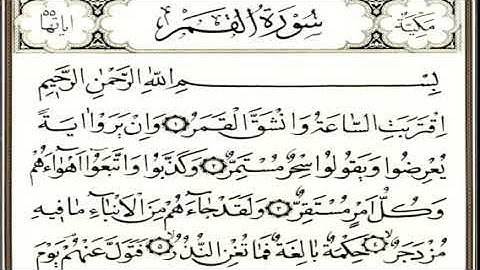 مكية سورة القمر اياتها ٥٥
بِسْمِ اللهِ الرَّحْمٰنِ الرَّحِيمِ
اِقْتَرَبَتِ السَّاعَةُ وَانْشَقَّ الْقَمَرُ ۝١ وَاِنْ يَرَوْا اٰيَةً
يُعْرِضُوا وَيَقُولُوا سِحْرٌ مُسْتَمِرٌّ ۝٢ وَكَذَّبُوا وَاتَّبَعُوا اَهْوَاءَهُمْ
وَكُلُّ اَمْرٍ مُسْتَقِرٌّ ۝٣ وَلَقَدْ جَاءَهُمْ مِنَ الْاَنْبَاءِ مَا فِيهِ
مُزْدَجَرٌ ۝٤ حِكْمَةٌ بَالِغَةٌ فَمَا تُغْنِ النُّذُرُ ۝٥ فَتَوَلَّ عَنْهُمْ يَوْمَ